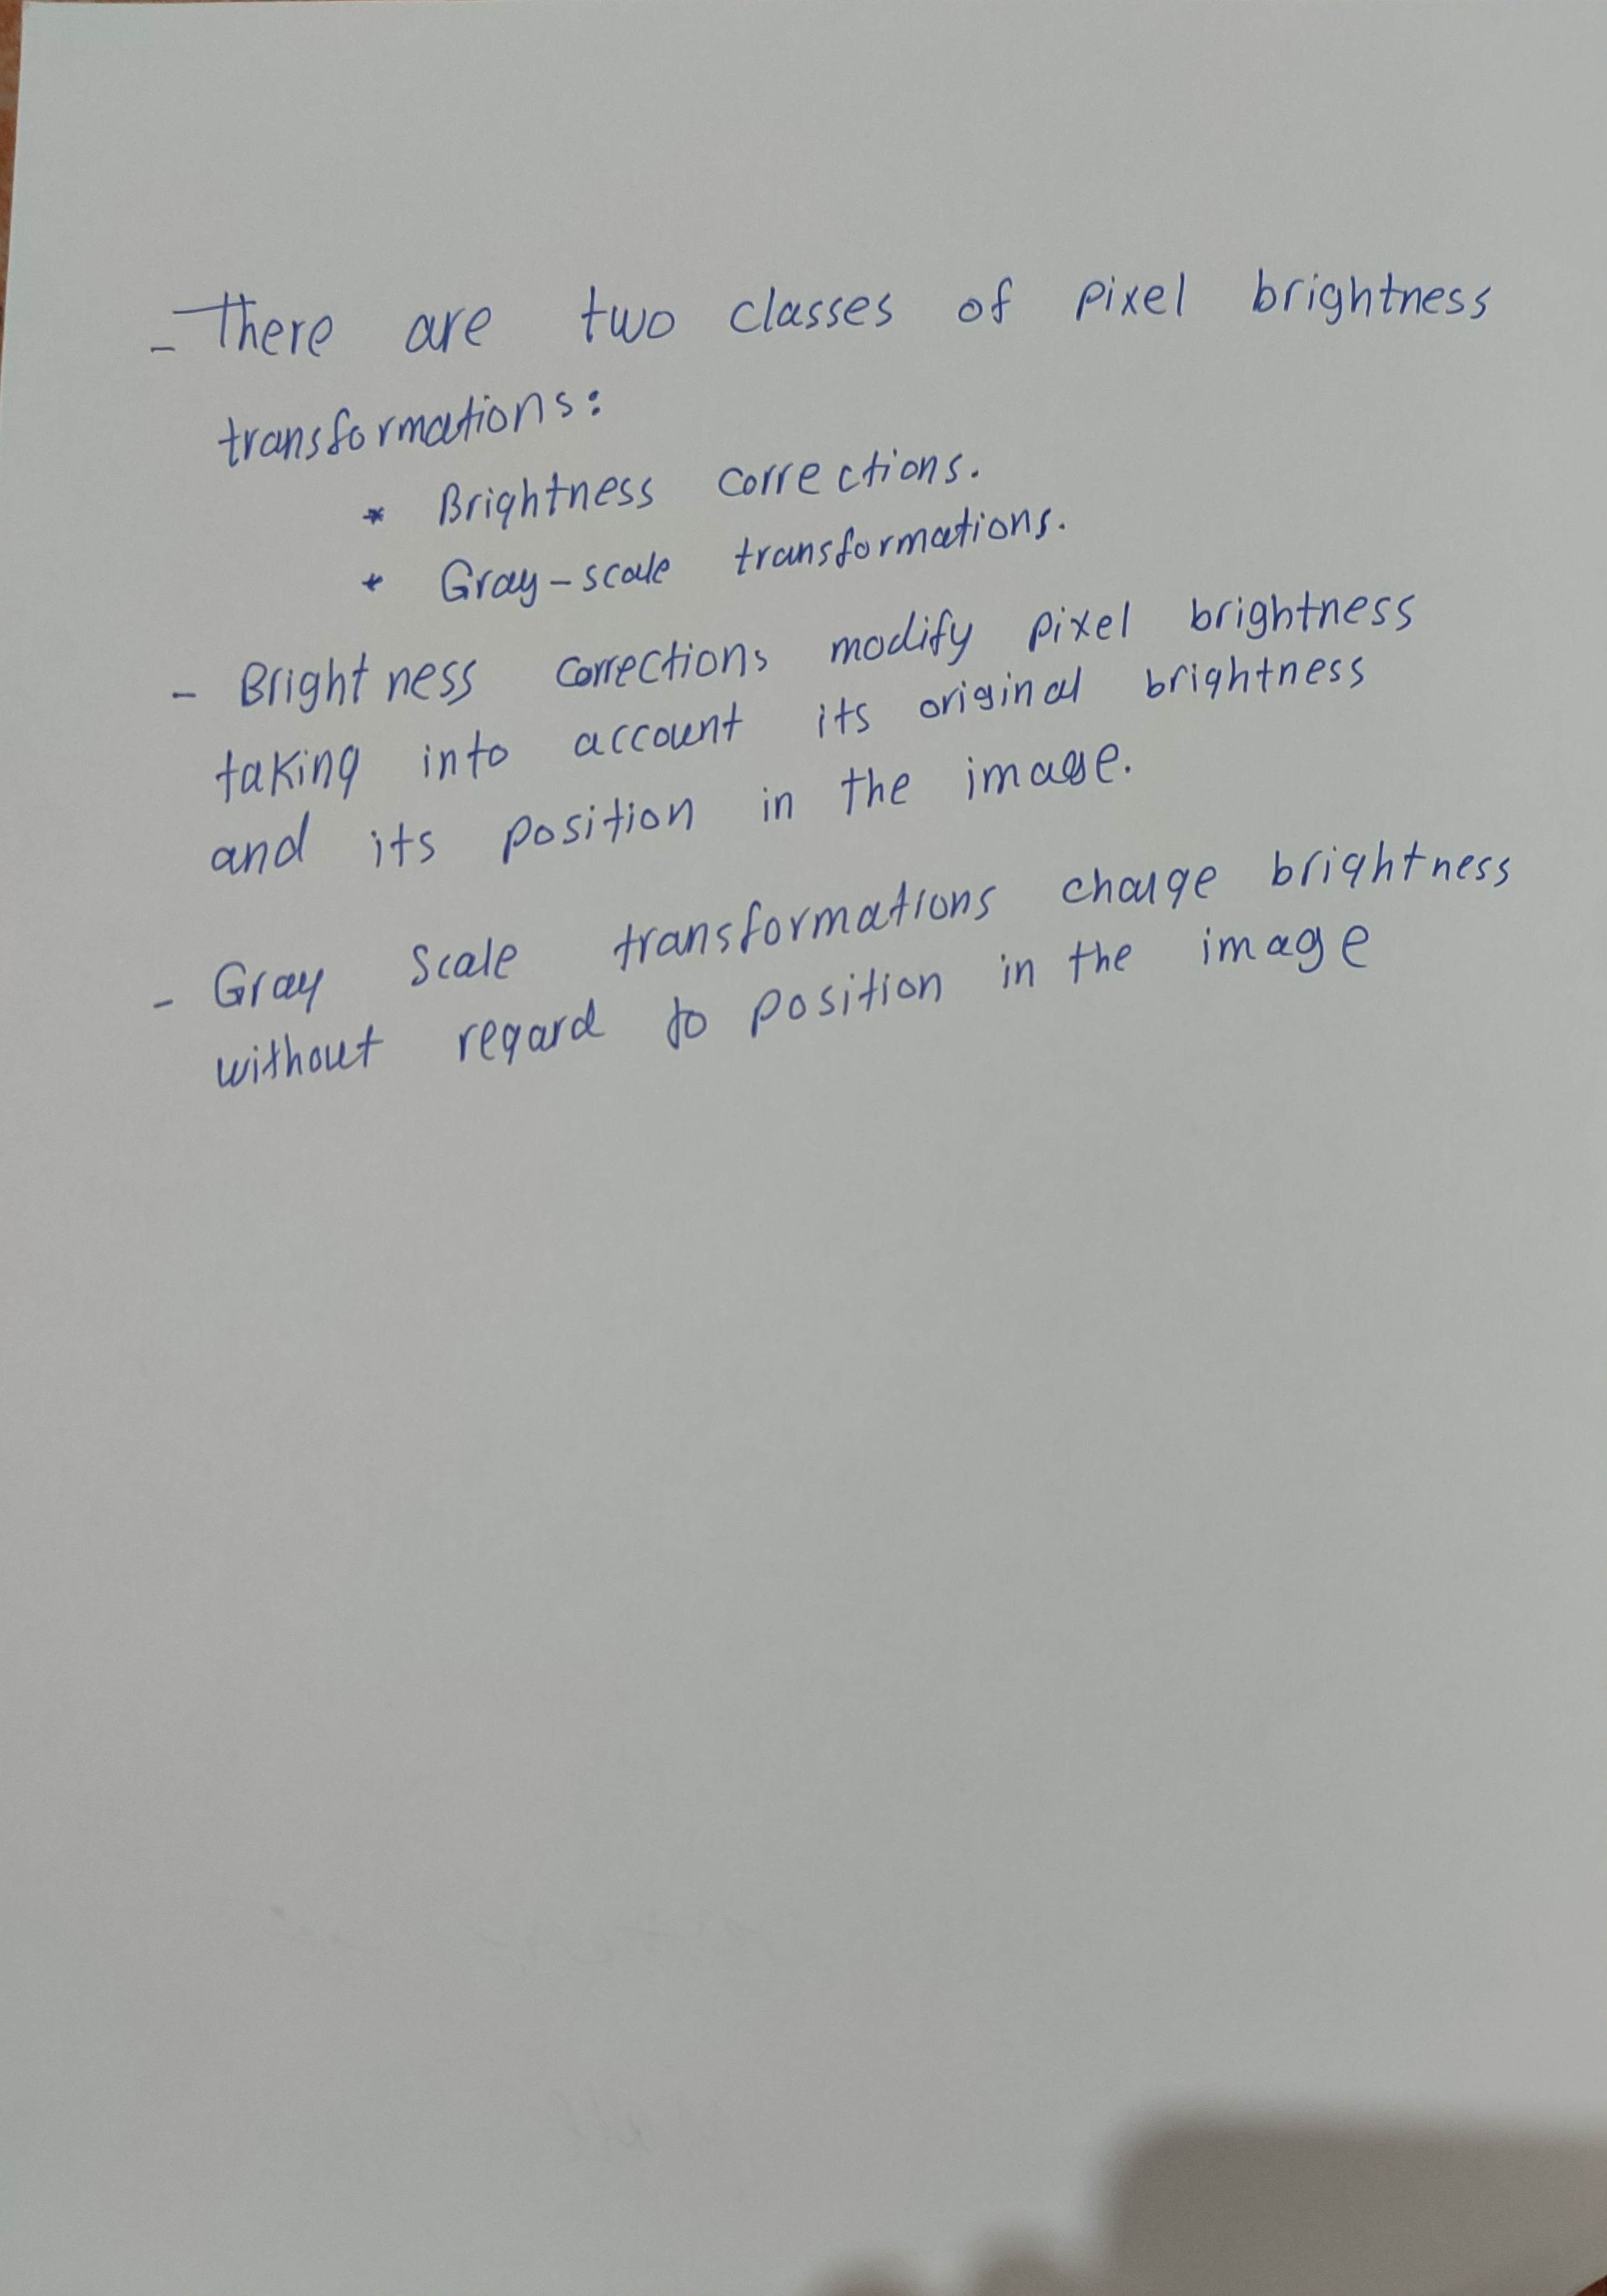 - There are two classes of pixel brightness
transformations:
* Brightness corrections.
* Gray-scale transformations.
- Brightness corrections modify pixel brightness
taking into account its original brightness
and its position in the image.
- Gray scale transformations change brightness
without regard to position in the image